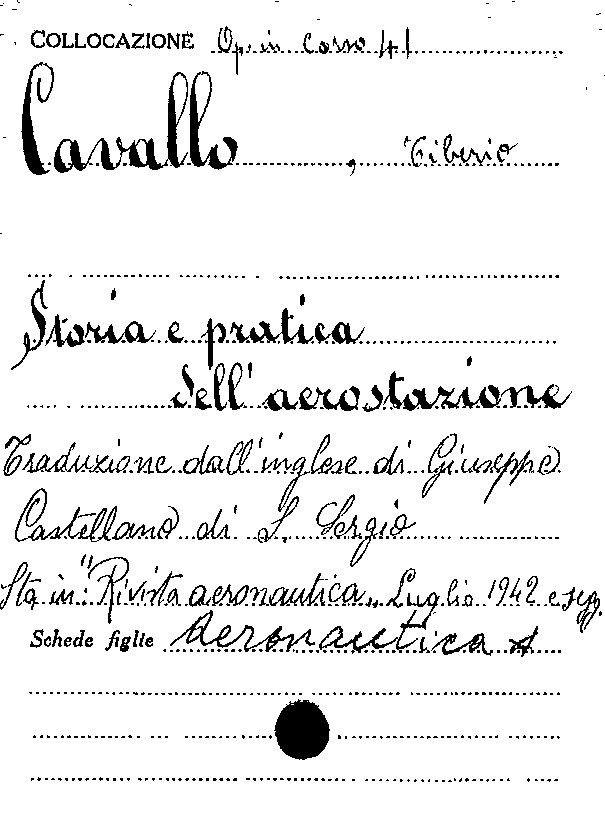 COLLOCAZIONE Op. in corso 41
Cavallo, Tiberio
Storia e pratica
dell'aerostazione
Traduzione dall'inglese di Giuseppe
Castellano di S. Sergio
Sta in: "Rivista aeronautica" Luglio 1942 e segg.
Schede figlie Aeronautica